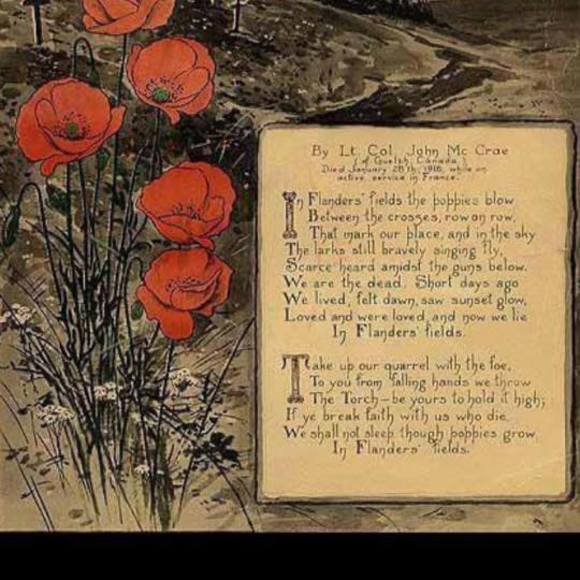 By Lt. Col. John Mc Crae
(of Guelph, Canada.)
Died January 28th, 1918, while on
active service in France.
In Flanders' fields the poppies blow
Between the crosses, row on row,
That mark our place, and in the sky
The larks still bravely singing fly,
Scarce heard amidst the guns below.
We are the dead. Short days ago
We lived, felt dawn, saw sunset glow,
Loved and were loved, and now we lie
In Flanders' fields.
Take up our quarrel with the foe,
To you from falling hands we throw
The Torch – be yours to hold it high;
If ye break faith with us who die,
We shall not sleep though poppies grow
In Flanders' fields.